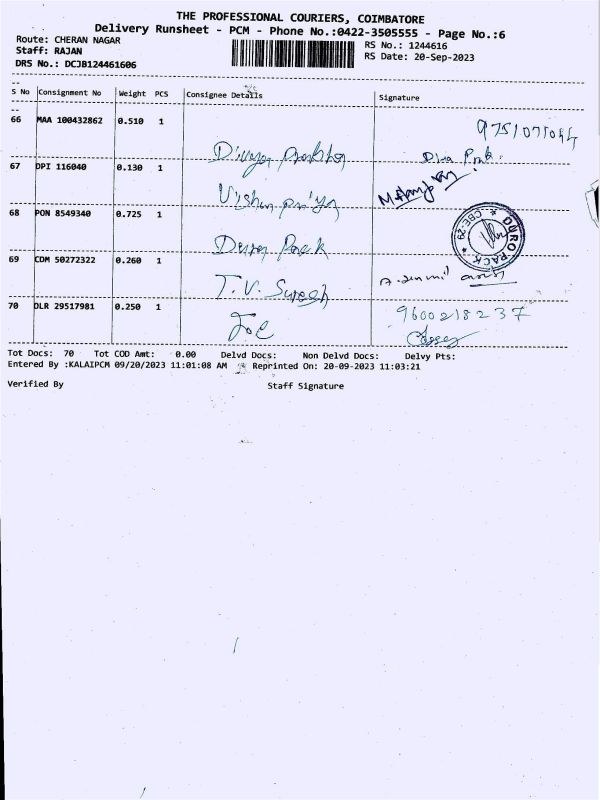 THE PROFESSIONAL COURIERS, COIMBATORE
Delivery Runsheet - PCM - Phone No.:0422-3505555 - Page No.:6
Route: CHERAN NAGAR
RS No.: 1244616
Staff: RAJAN
RS Date: 20-Sep-2023
DRS No.: DCJB124461606
S No Consignment No Weight PCS Consignee Details Signature
66 MAA 100432862 0.510 1
Divya
67 DPI 116040 0.130 1
Vishnu priya
68 PON 8549340 0.725 1
Duro Pack
DURO PACK * CBE-29 *
69 COM 50272322 0.260 1
T.V. Suresh
70 DLR 29517981 0.250 1
Joe
9600218237
Tot Docs: 70 Tot COD Amt: 0.00 Delvd Docs: Non Delvd Docs: Delvy Pts:
Entered By :KALAIPCM 09/20/2023 11:01:08 AM Reprinted On: 20-09-2023 11:03:21
Verified By Staff Signature